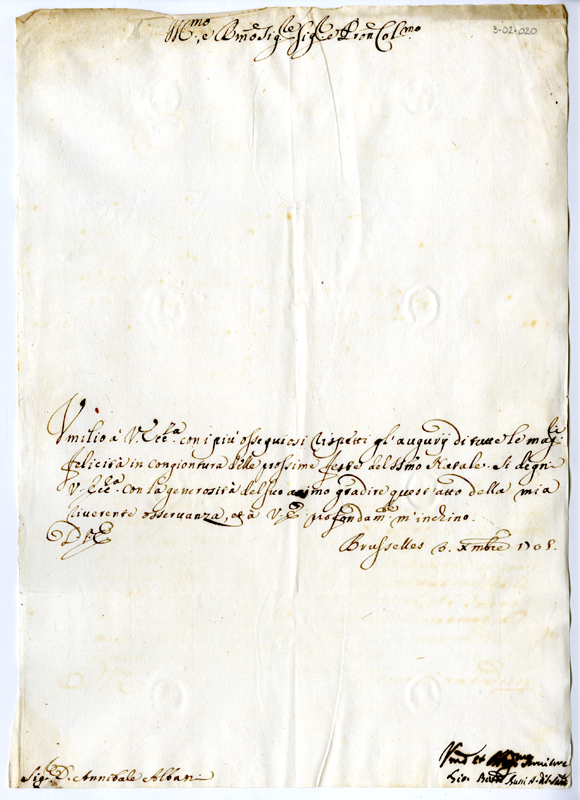 Ill.mo, e R.mo Sig.re Sig.re e Pron Col.mo
3-02-020
Umilio à V. Ecc.a con i più ossequiosi rispetti gl'augurÿ di tutte le mag.ri
felicità in congiontura delle prossime feste del SSmo Natale. Si degni
V. Ecc.a con la generosità del suo animo gradire quest'atto della mia
riverente osservanza, et à V. E. profondam.te m'inchino.
D. V. E.
Brusselles 3. Xmbre 1705.
Sig.r D. Annibale Albani
Um.o et Servitore
Gio. Batta Bussi